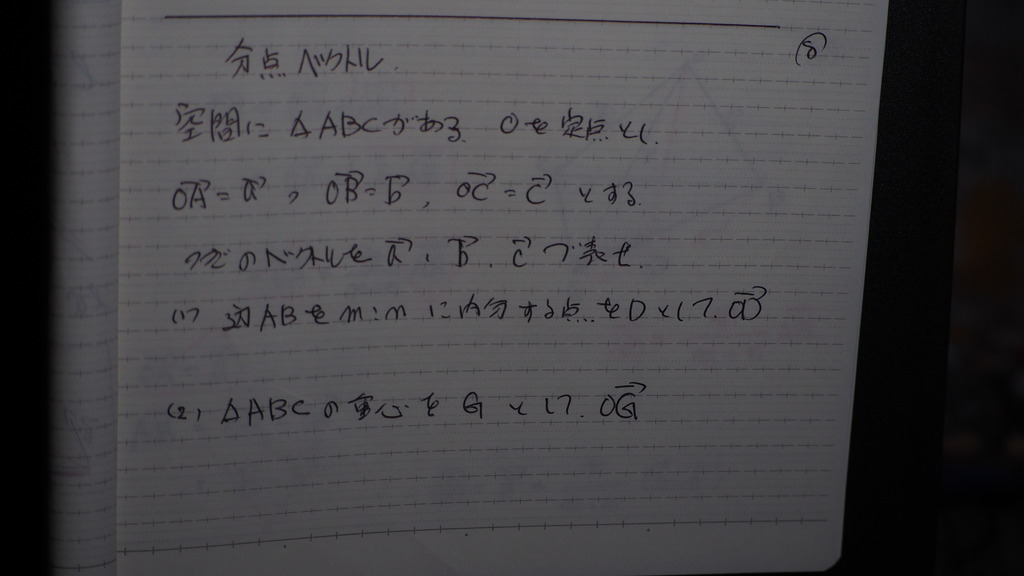 分点ベクトル. ⑧
空間に △ABCがある. Oを定点とし.
OA⃗ = a⃗, OB⃗ = b⃗, OC⃗ = c⃗ とする.
つぎのベクトルを a⃗, b⃗, c⃗ で表せ.
(1) 辺ABを m:n に内分する点をDとして. OD⃗
(2) △ABCの重心を G として. OG⃗